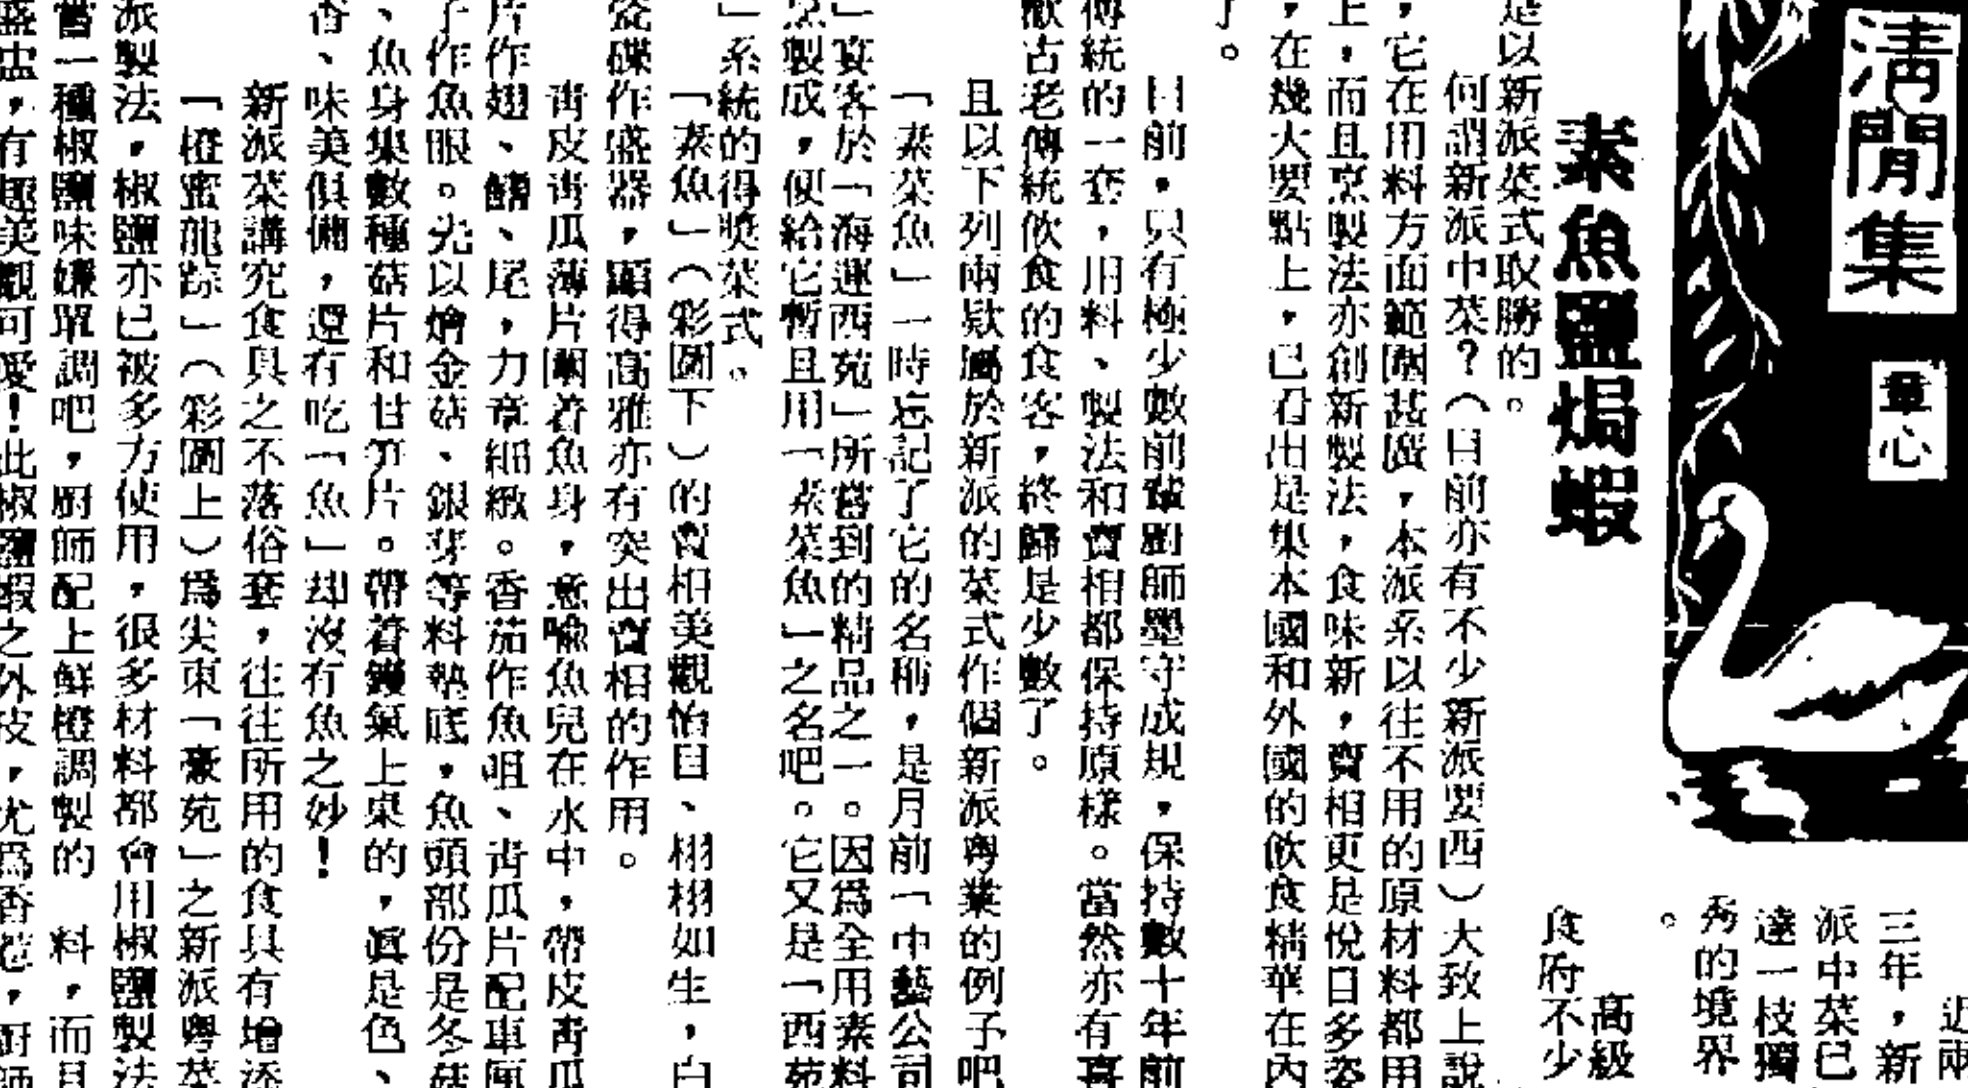 清閒集
章心
素魚鹽焗蝦
近兩
三年，新
派中菜已
達一枝獨
秀的境界
。
高級
食府不少
是以新派菜式取勝的。
何謂新派中菜？（目前亦有不少新派要西）大致上說
，它在用料方面範圍甚廣，本派系以往不用的原材料都用
上，而且烹製法亦創新製法，食味新，賣相更是悅目多姿
，在幾大要點上，已看出是集本國和外國的飲食精華在內
了。
目前，只有極少數前輩廚師墨守成規，保持數十年前
傳統的一套，用料、製法和賣相都保持原樣。當然亦有喜
歡古老傳統飲食的食客，終歸是少數了。
且以下列兩款屬於新派的菜式作個新派粵業的例子吧
「素菜魚」一時忘記了它的名稱，是月前「中藝公司
」宴客於「海運西苑」所嘗到的精品之一。因爲全用素料
烹製成，便給它暫且用「素菜魚」之名吧。它又是「西苑
」系統的得獎菜式。
「素魚」（彩圖下）的賣相美觀怡目、栩栩如生，白
瓷碟作盛器，顯得高雅亦有突出賣相的作用。
青皮青瓜薄片圍着魚身，意喻魚兒在水中，帶皮青瓜
片作翅、鰭、尾，力章細緻。香茄作魚咀、青瓜片配車厘
子作魚眼。先以燴金菇、銀芽等料墊底，魚頭部份是冬菇
、魚身集數種菇片和甘笋片。帶着鑊氣上桌的，眞是色、
香、味美俱備，還有吃「魚」却沒有魚之妙！
新派菜講究食具之不落俗套，往往所用的食具有增添
「橙蜜龍踪」（彩圖上）爲尖東「豪苑」之新派粵菜
派製法，椒鹽亦已被多方使用，很多材料都會用椒鹽製法
嘗一種椒鹽味嫌單調吧，廚師配上鮮橙調製的　料，而且
盛盅，有趣美觀可愛！此椒鹽蝦之外皮，尤爲香　，廚師